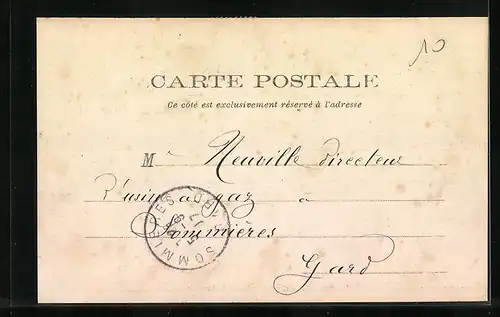 10
CARTE POSTALE
Ce côté est exclusivement réservé à l'adresse
M r Neuville directeur
d'usine à gaz à
Sommières
Gard
SOMMIERES GARD